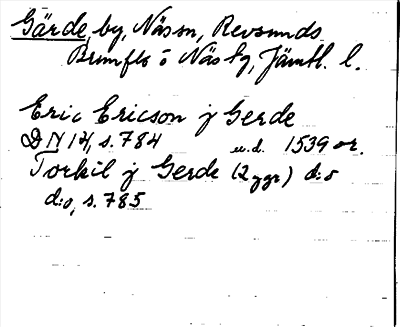 Gärde, by, Näs sn, Revsunds
Brunflo o Näs tg, Jämtl. l.
Eric Ericson j Gerde
DN 14, s. 784 u.d. 1539 or.
Torkil j Gerde (2 ggr) d:o
d:o, s. 785